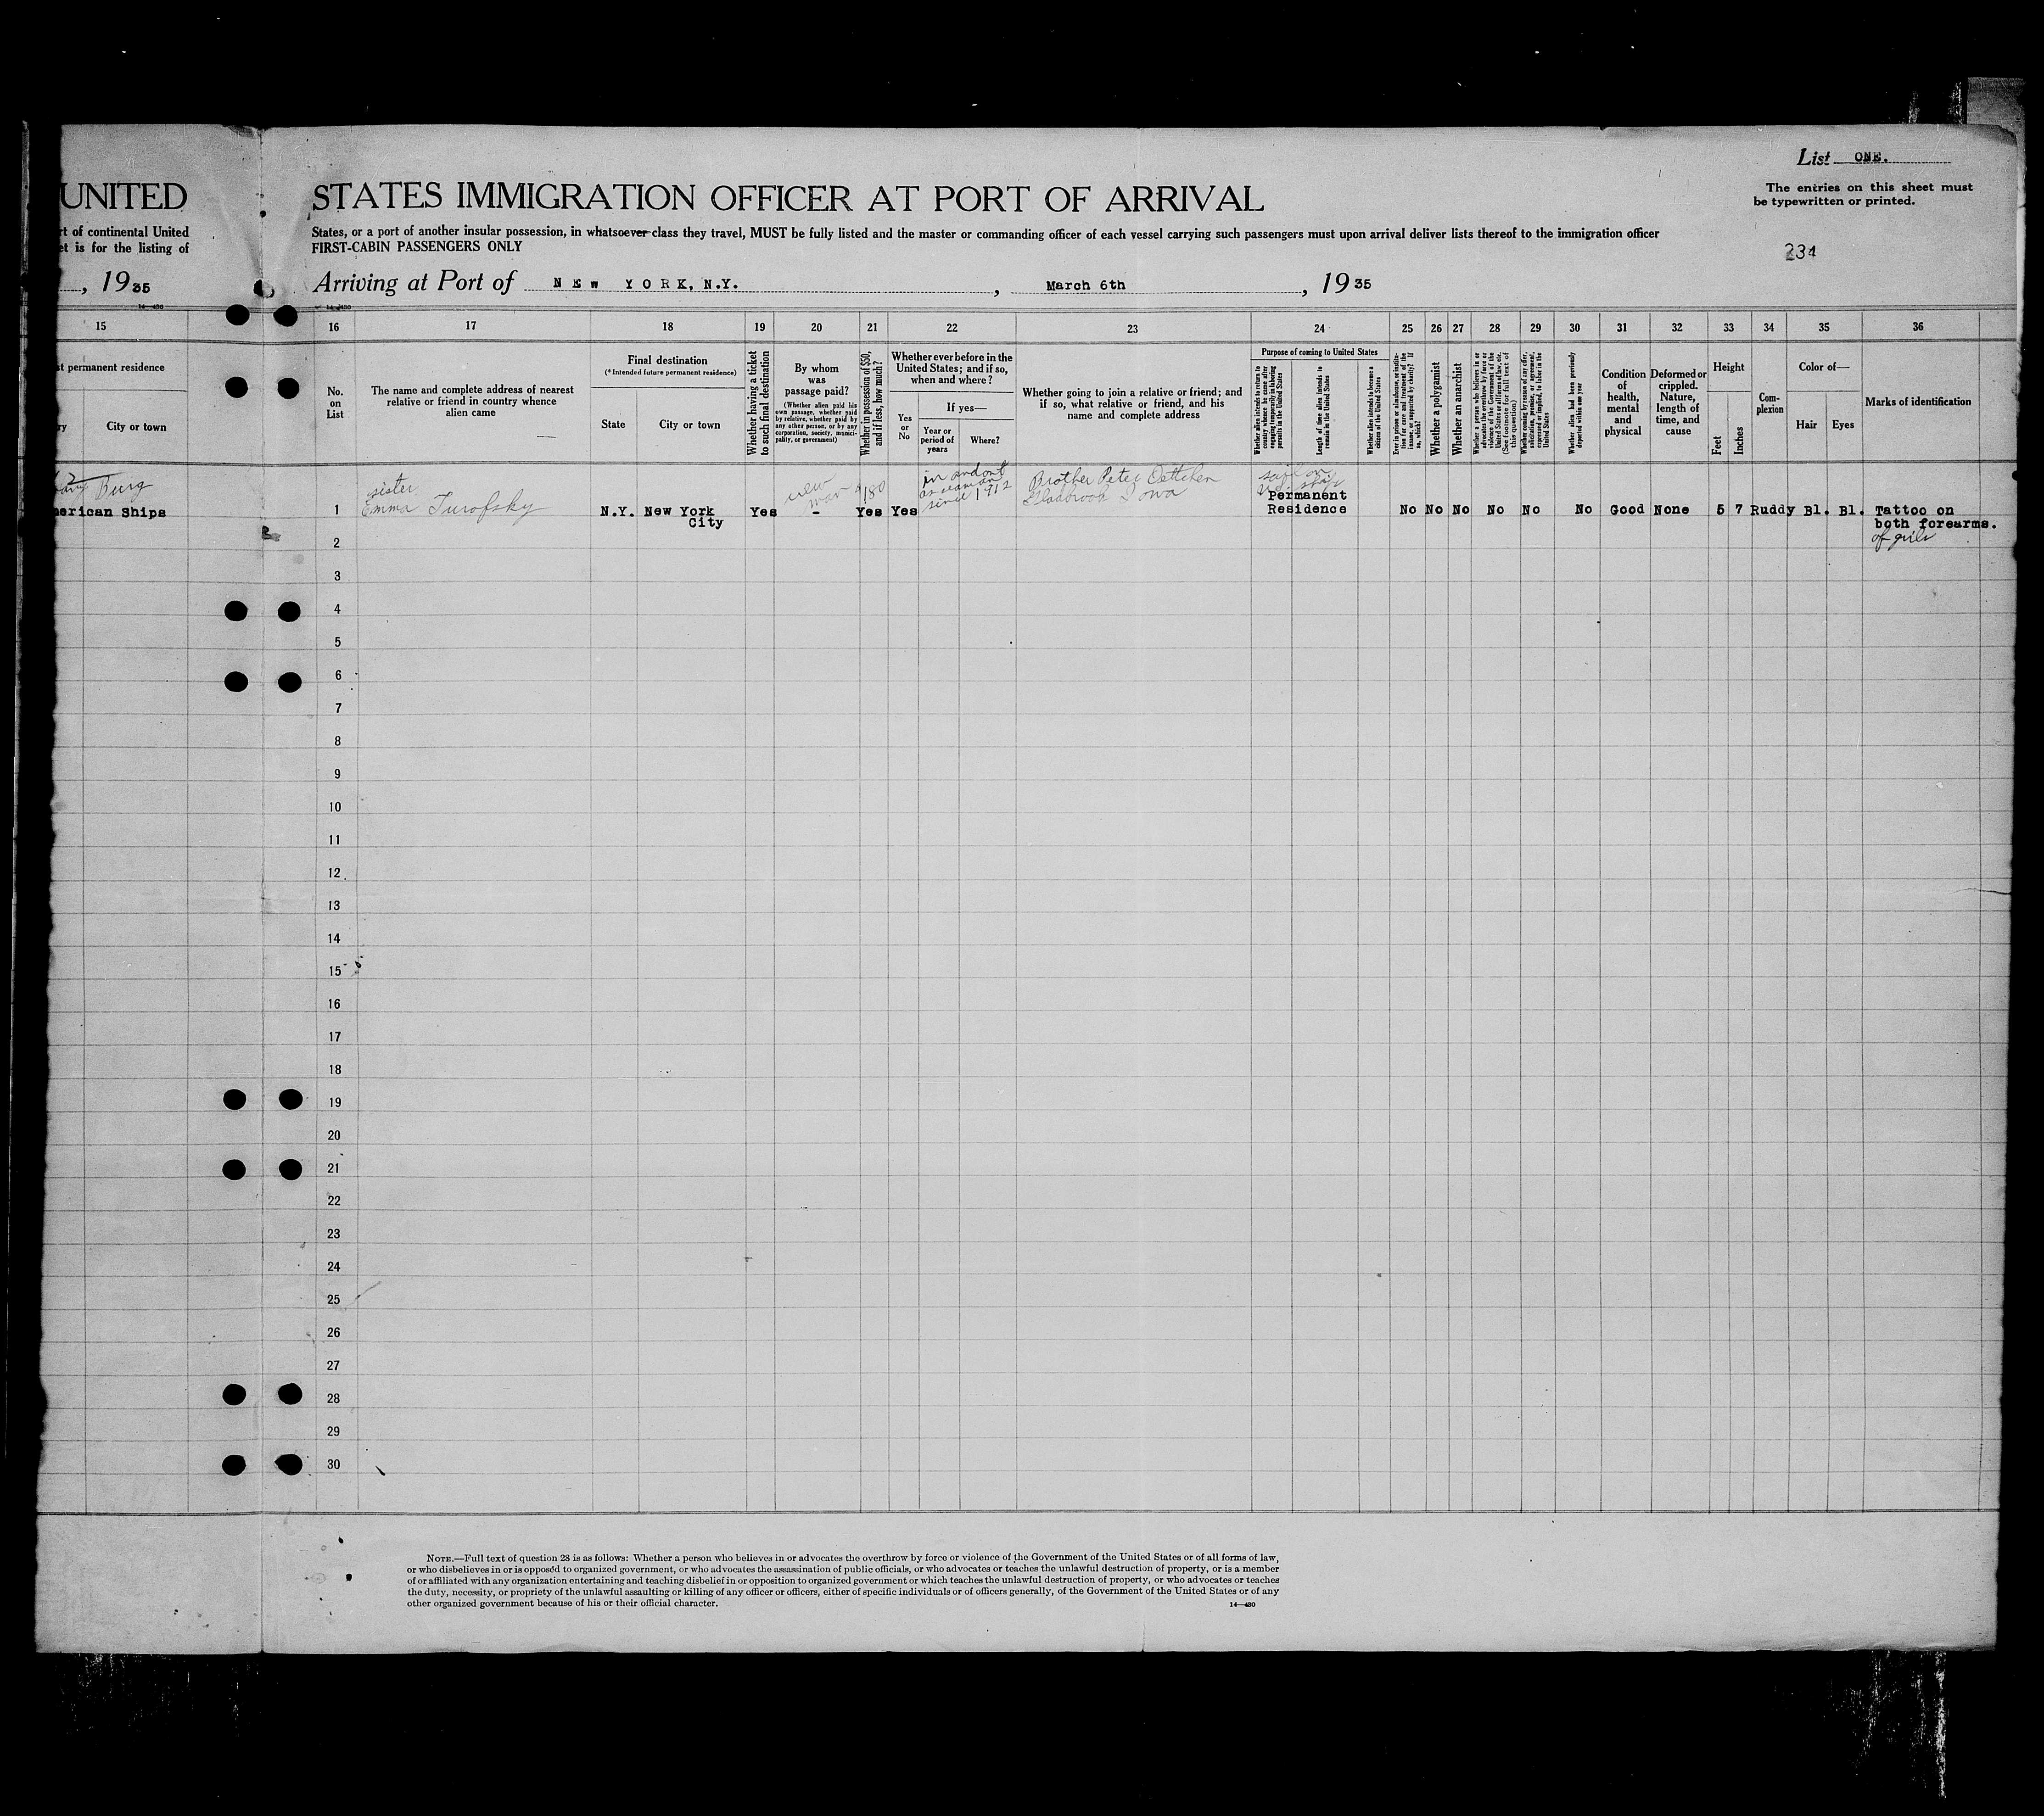 List ONE.
The entries on this sheet must
be typewritten or printed.
234
UNITED
STATES IMMIGRATION OFFICER AT PORT OF ARRIVAL
rt of continental United
States, or a port of another insular possession, in whatsoever class they travel, MUST be fully listed and the master or commanding officer of each vessel carrying such passengers must upon arrival deliver lists thereof to the immigration officer
et is for the listing of
FIRST-CABIN PASSENGERS ONLY
, 1935
Arriving at Port of NEW YORK, N.Y. , March 6th , 1935
14—430
14—430
15 16 17 18 19 20 21 22 23 24 25 26 27 28 29 30 31 32 33 34 35 36
st permanent residence
ry
City or town
No.
on
List
The name and complete address of nearest
relative or friend in country whence
alien came
Final destination
(*Intended future permanent residence)
State
City or town
Whether having a ticket
to such final destination
By whom
was
passage paid?
(Whether alien paid his
own passage, whether paid
by relative, whether paid by
any other person, or by any
corporation, society, munici-
pality, or government)
Whether in possession of $50,
and if less, how much?
Whether ever before in the
United States; and if so,
when and where?
Yes
or
No
If yes—
Year or
period of
years
Where?
Whether going to join a relative or friend; and
if so, what relative or friend, and his
name and complete address
Purpose of coming to United States
Whether alien intends to return to
country whence he came after
engaging temporarily in laboring
pursuits in the United States
Length of time alien intends to
remain in the United States
Whether alien intends to become a
citizen of the United States
Ever in prison or almshouse, or institu-
tion for care and treatment of the
insane, or supported by charity? If
so, which?
Whether a polygamist
Whether an anarchist
Whether a person who believes in or
advocates the overthrow by force or
violence of the Government of the
United States or all forms of law, etc.
(See footnote for full text of
this question)
Whether coming by reason of any offer,
solicitation, promise, or agreement,
expressed or implied, to labor in the
United States
Whether alien had been previously
deported within one year
Condition
of
health,
mental
and
physical
Deformed or
crippled.
Nature,
length of
time, and
cause
Height
Feet
Inches
Com-
plexion
Color of—
Hair
Eyes
Marks of identification
Burg
merican Ships
1
sister
Emma Turofsky
N.Y. New York
City
Yes
new
-
$180
Yes
Yes
in and out
as seaman
since 1912
Brother Peter Oettchen
Gladbrook Iowa
Permanent
Residence
No No No No No No Good None 5 7 Ruddy Bl. Bl. Tattoo on
both forearms.
of girls
2
3
4
5
6
7
8
9
10
11
12
13
14
15
16
17
18
19
20
21
22
23
24
25
26
27
28
29
30
NOTE.—Full text of question 28 is as follows: Whether a person who believes in or advocates the overthrow by force or violence of the Government of the United States or of all forms of law,
or who disbelieves in or is opposed to organized government, or who advocates the assassination of public officials, or who advocates or teaches the unlawful destruction of property, or is a member
of or affiliated with any organization entertaining and teaching disbelief in or opposition to organized government or which teaches the unlawful destruction of property, or who advocates or teaches
the duty, necessity, or propriety of the unlawful assaulting or killing of any officer or officers, either of specific individuals or of officers generally, of the Government of the United States or of any
other organized government because of his or their official character.
14—430